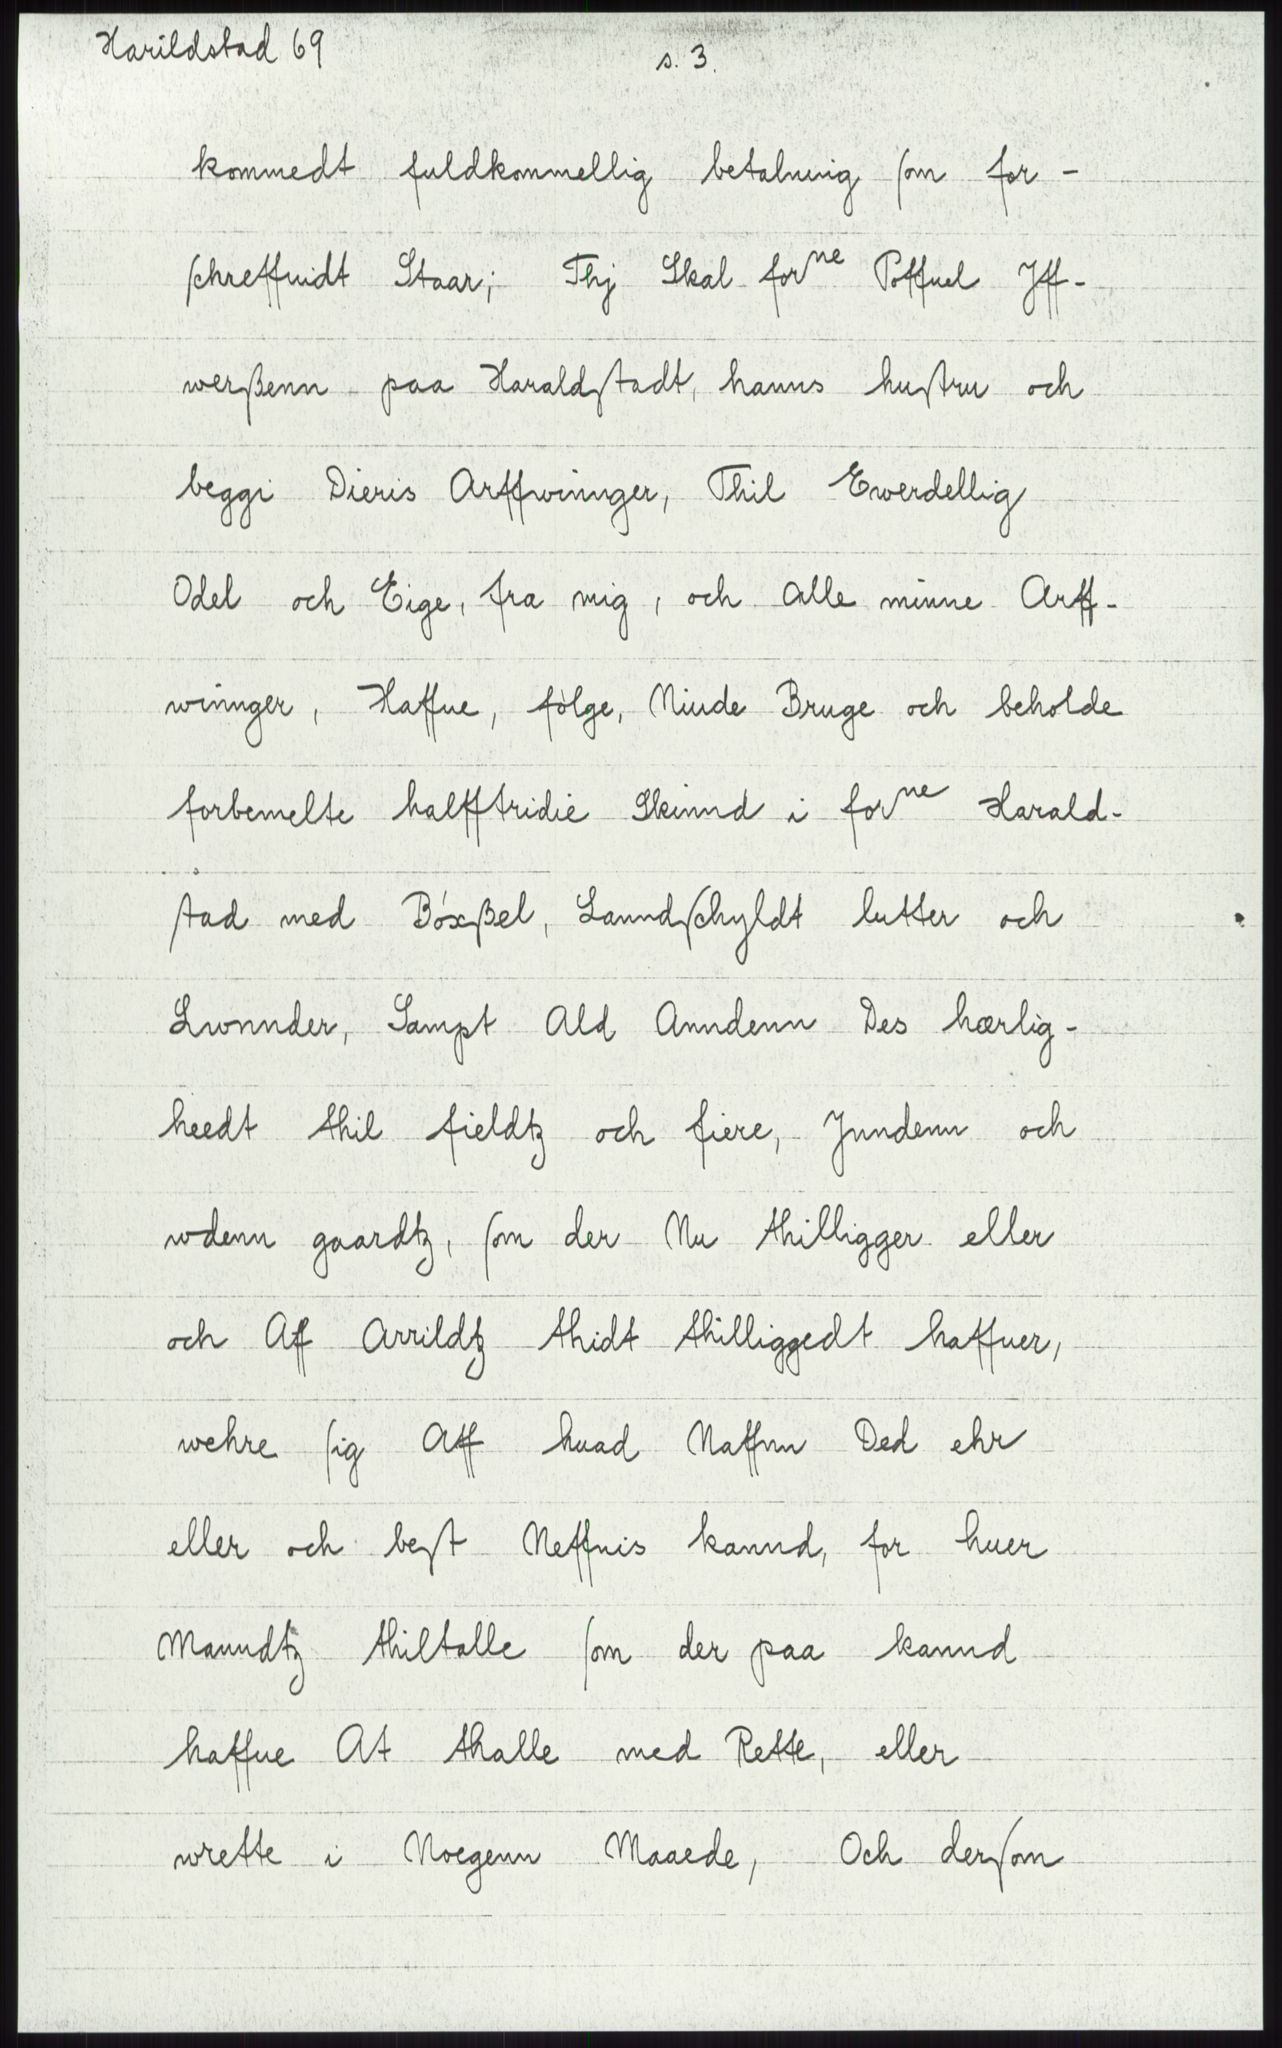 Harildstad 69
s. 3.
kommedt fuldkommellig betalning som for-
schreffuidt Staar; Thj Skal forne Poffuel Jff-
werßenn paa Haraldstadt, hanns hustru och
beggi Dieris Arffwinnger, Thil Ewerdellig
Odel och Eige, fra mig, och alle minne Arff-
winnger, Haffue, følge, Niude Bruge och beholde
forbemelte halfftridie Skinnd i forne Harald-
stad med Bóxßel, Lanndschyldt lutter och
Lwnnder, Sampt Ald Anndenn Des hærlig-
heedt thil fieldtz och fiere, Jnndenn och
wdenn gaardtz, som der Nu thilligger eller
och Aff Arrildtz thidt thilliggedt haffuer,
wehre sig Aff huad Naffnn Ded ehr
eller och best Neffnis kannd, for huer
Manndtz thiltalle som der paa kannd
haffue At thalle med Rette, eller
wrette i Noegenn Maaede, Och dersom